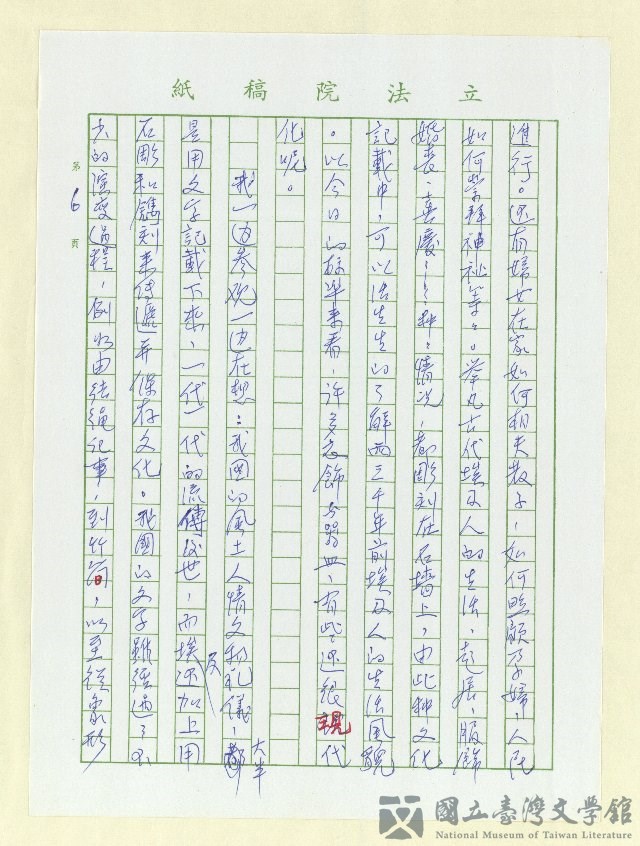 立法院稿紙
進行。還有婦女在家如何相夫教子，如何照顧孕婦，人民
如何崇拜神祉等々。舉凡古代埃及人的生活、起居、服飾
婚喪、喜慶，々種情況，都彫刻在石墻上，由此种文化
記載中，可以活生生的了解兩三千年前埃及人的生活風貌
。以今日的標準來看，許多衣飾与器皿，有些還很現代
化呢。
我一边參观一边在想：我國的風土人情文物礼儀，大半
是用文字記載下來，一代一代的流傳後世，而埃及還加上用
石彫和鐫刻來傳遞并保存文化。我國的文字雖經過了
的演變過程，例如由结绳记事，到竹簡，以至從象形
第6頁
國立臺灣文學館
National Museum of Taiwan Literature